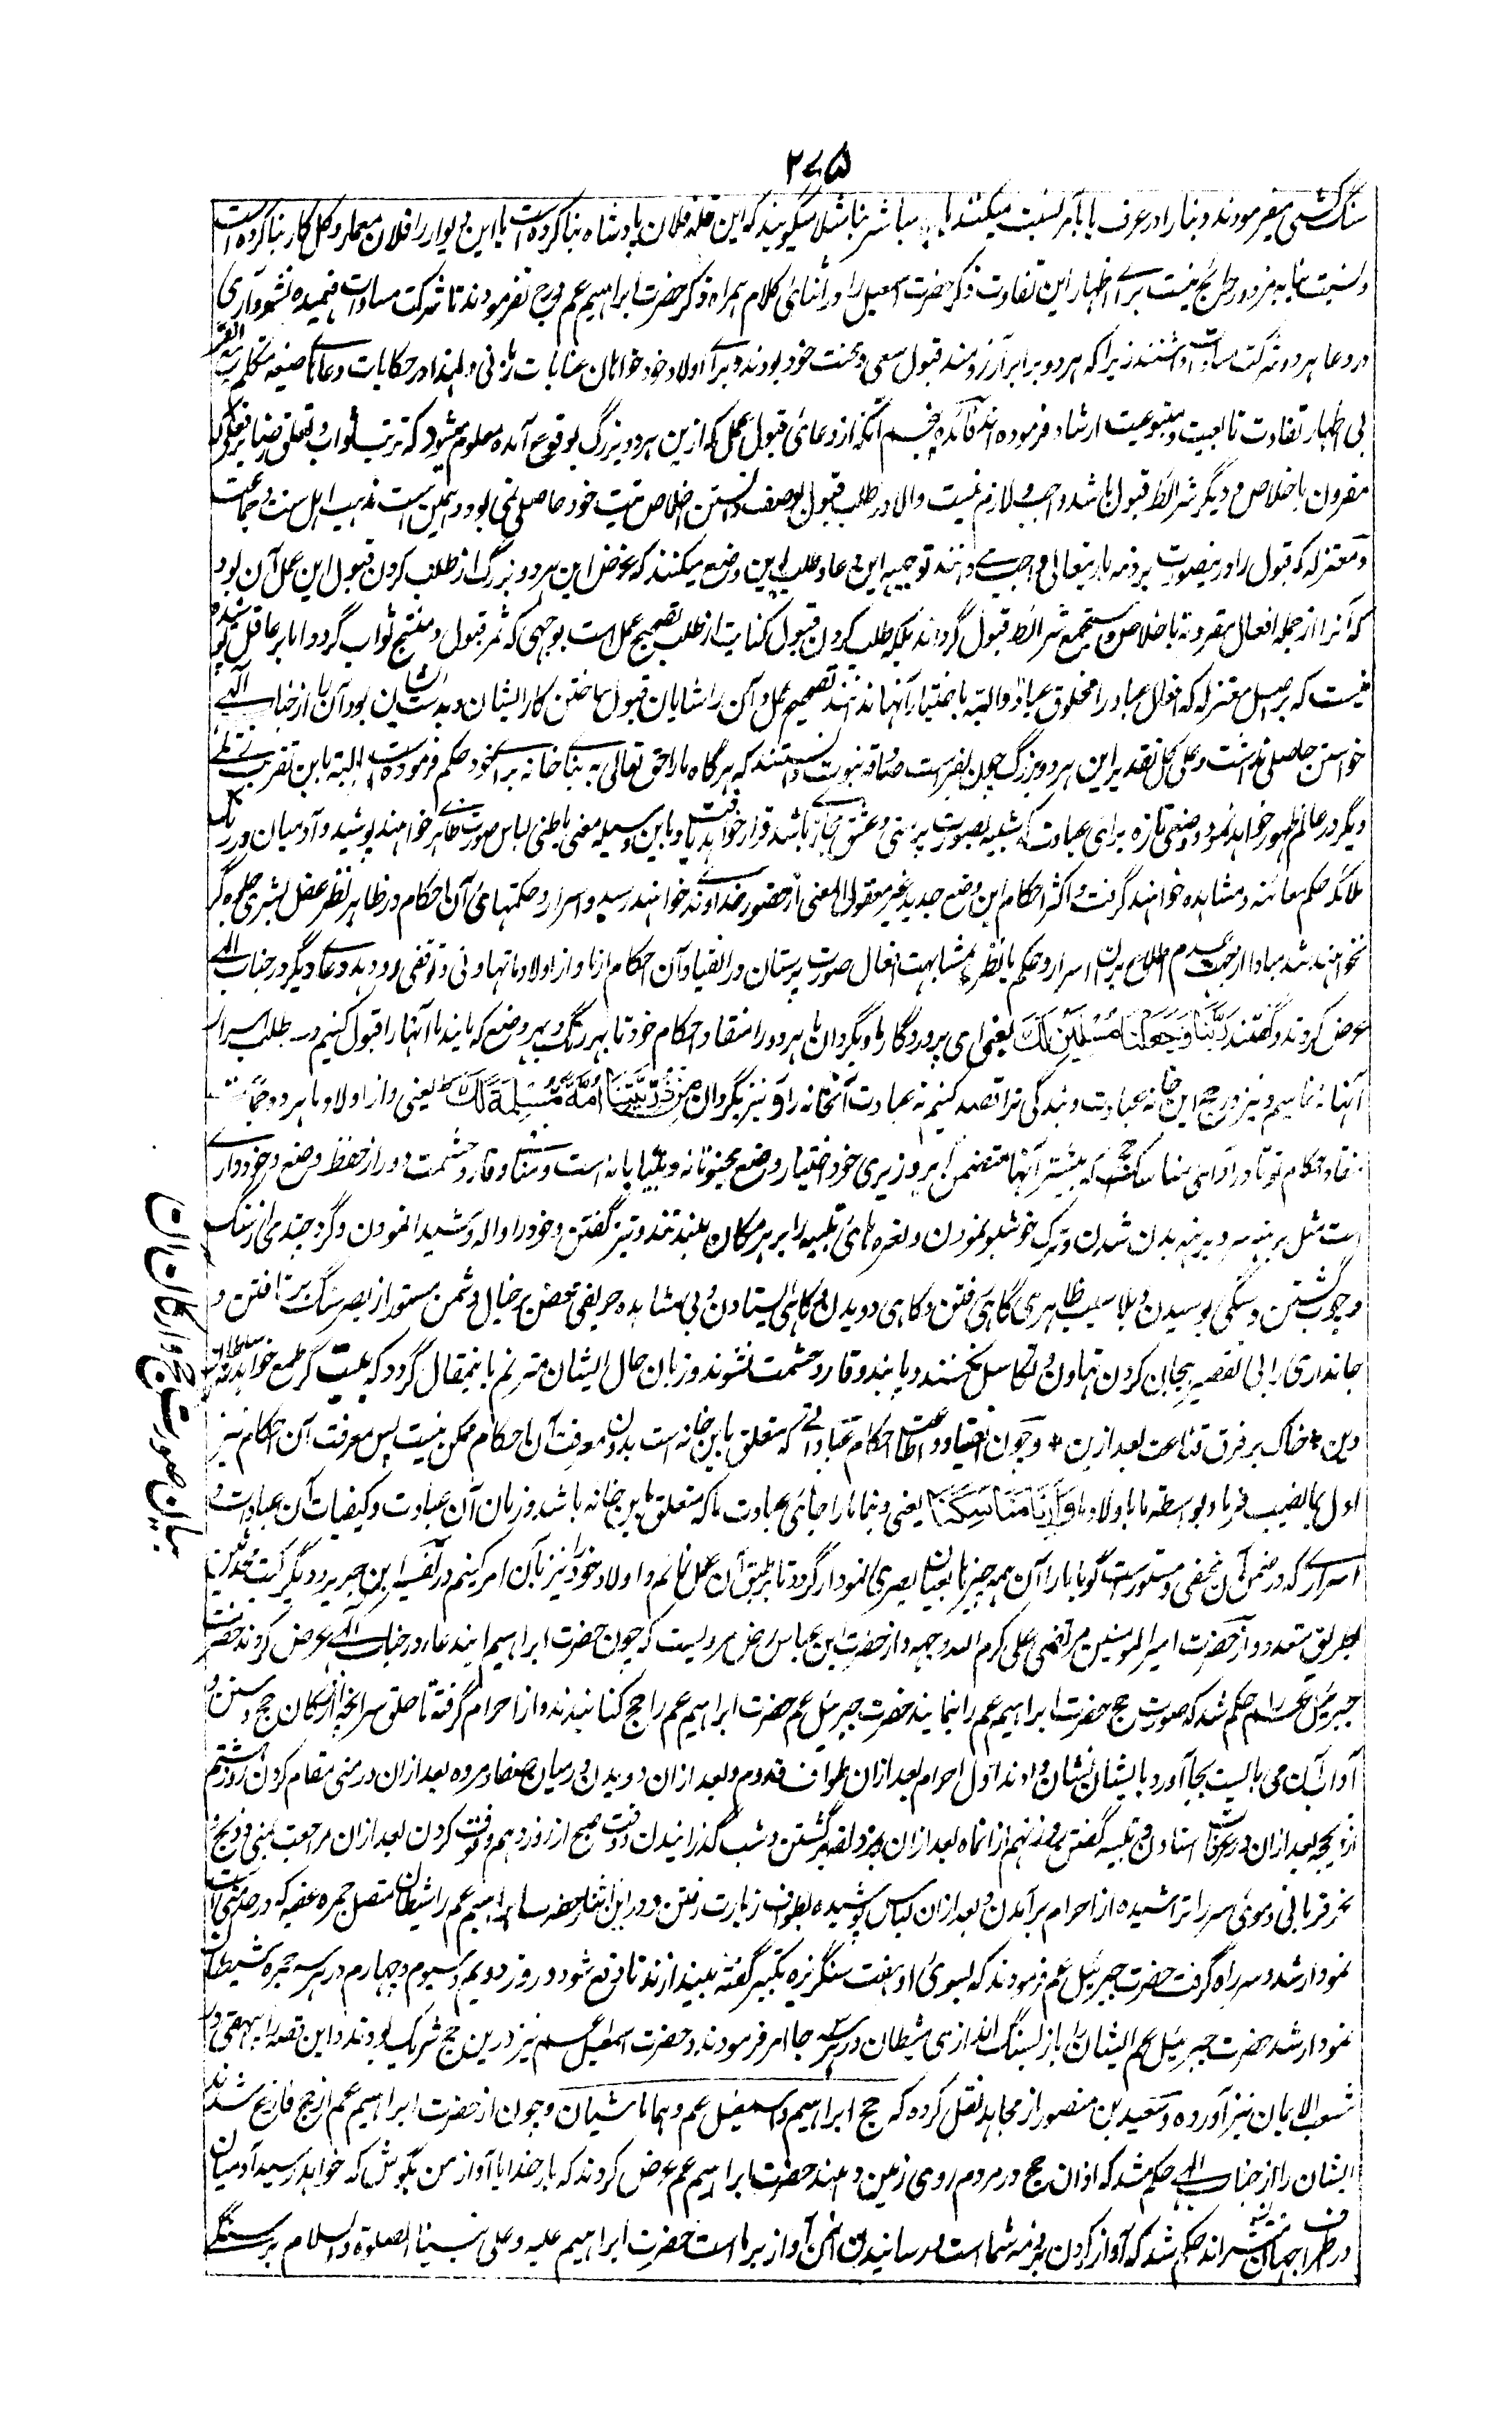 ۲۷۵
سنگ کشی میفرمودند و بنا را در عرف یا بآمر نسبت میکنند یا بمباشر بنا مثلا میگویند که این قلعه فلان پادشاه بنا کرده است یا این دیوار را فلان معمار و گل کار بنا کرده است
و نسبت بنا به مزدور رائج نیست برای اظهار این تفاوت ذکر حضرت اسمعیل را در اثنای کلام همراه ذکر حضرت ابراهیم عم درج نفرمودند تا شرکت مساوات فهمیده نشود آری
در دعا هر دو شرکت مساوات داشتند زیرا که هر دو برابر آرزومند قبول سعی و محنت خود بودند و برای اولاد خود خواهان عنایات ربانی و لهذا در حکایات دعاها صیغه متکلم مع الغیر
بی اظهار تفاوت تابعیت و متبوعیت ارشاد فرموده اند فائده پنجم آنکه از دعای قبول عمل که ازین هر دو بزرگ بوقوع آمده معلوم میشود که ترتب ثواب و تعلق رضا بر فعلی که
مقرون باخلاص و دیگر شرائط قبول باشد واجب و لازم نیست والا در طلب قبول بوصف دانستن اخلاص نیت خود حاصلی نمی بود و همین است مذهب اهل سنت و جماعت
و معتزله که قبول را درینصورت بر ذمه باریتعالی واجب میدانند توجیه این دعا و طلب باین وضع میکنند که غرض این هر دو بزرگ از طلب کردن قبول این عمل آن بود
که آنرا از جمله افعال مقرونه باخلاص و مستجمع شرائط قبول گرداند بلکه طلب کردن قبول کنایت از طلب تصحیح عمل است بوجهی که مثمر قبول و منتج ثواب گردد اما بر عاقل پوشیده
نیست که بر اصل معتزله که افعال عباد را مخلوق عباد و البته باختیار آنها دانند تصحیح عمل و آن را شایان قبول ساختن کار ایشان و بدست ایشان بود آن را از جناب الهی
خواستن حاصلی نداشت و علی کل تقدیر این هر دو بزرگ چون بفراست صادقه نبوت دانستند که هر گاه ما را حق تعالی به بنای خانه برای خود حکم فرموده است البته باین تقریب تجلی
دیگر در عالم ظهور خواهد نمود و وضعی تازه برای عبادت که شبیه بصورت پرستی و عشق مجاز باشد قرار خواهد یافت و باین وسیله معنی باطنی لباس صورت ظاهر خواهند پوشید و آدمیان در رنگ
ملائکه حکم معائنه و مشاهده خواهند گرفت و اکثر احکام این وضع جدید غیر معقول المعنی از حضور خداوند خواهند رسید و اسرار و حکمتهای آن احکام در ظاهر نظر عقل بشری جلوه گر
نخواهند شد مبادا از جهت عدم اطلاع بر آن اسرار و حکم یا نظر بمشابهت افعال صورت پرستان در انقیاد آن احکام از ما و از اولاد ما تهاونی و توقفی رو دهد دعای دیگر در جناب الهی
عرض کردند و گفتند رَبَّنَا وَ جَعَلْنَا مُسْلِمَيْنِ لَكَ یعنی ای پروردگار ما و بگردان ما هر دو را منقاد احکام خود تا بهر رنگ و بهر وضع که بایند ما آنها را قبول کنیم و در طلب اسرار
آنها نه نمائیم و نیز در حج این خانه عبادت و بندگی ترا قصد کنیم نه عبادت آنخانه را و نیز بگردان مِنْ ذُرِّيَّتِنَا اُمَّةً مُّسْلِمَةً لَّكَ یعنی و از اولاد ما هر دو جماعت
منقاد احکام تو تا در ادای مناسک حج که بیشتر آنها متضمن بروزیری خود اختیار وضع مجنونانه و بیتابانه است و منافی وقار و حشمت و دور از حفظ وضع و خودداری
است مثل برهنه سر و برهنه بدن شدن و ترک خوشبو نمودن و نعره های تلبیه را بر هر مکان بلند تند و تیز گفتن و خود را واله و شیدا نمودن و گرد چندی از سنگ
و چوب گشتن و سنگی بوسیدن و بلا سبب ظاهری گاهی رفتن و گاهی دویدن و گاهی ایستادن و بی مشاهده حریفی محض بر خیال دشمن مستور از بصر سنگ برتافتن و
جانداری را بی تقصیر بیجان کردن تهاون و تکاسل نکنند و پابند وقار و حشمت نشوند و زبان حال ایشان مترنم باینمقال گردد که بیت گر طمع خواهد ز من سلطان
دین * خاک بر فرق قناعت بعد ازین * و چون انقیاد و اطاعت احکام عباداتی که متعلق باین خانه است بدون معرفت آن احکام ممکن نیست پس معرفت آن احکام نیز
اول بما نصیب فرما و بواسطه ما باولاد ما وَاَرِنَا مَنَاسِكَنَا یعنی و بنما ما را جاهای عبادت ما که متعلق باین خانه باشد و زمان آن عبادت و کیفیات آن عبادت و
اسراری که در ضمن آن مخفی و مستور است گویا ما را آن همه چیزها بعیان بصری نمودار گردد تا بر طبق آن عمل نمائیم و اولاد خود را نیز بآن امر کنیم در تفسیر ابن جریر و دیگر کتب محدثین
بطریق متعدده از حضرت امیر المومنین مرتضی علی کرم الله وجهه و از حضرت ابن عباس رض مرویست که چون حضرت ابراهیم ایندعا در جناب الهی عرض کردند حضرت
جبرئیل علیه السلام را حکم شد که صورت حج حضرت ابراهیم عم را نمایند حضرت جبرئیل عم حضرت ابراهیم عم را حج کنانیدند و از احرام گرفته تا حلق سر آنچه از ارکان حج و سنن و
آداب آن می بایست بجا آورد بایشان نشان دادند اول احرام بعد ازان طواف قدوم و بعد ازان دویدن درمیان صفا و مروه بعد ازان در منی مقام کردن روز هشتم
از ذیحجه بعد ازان در عرفات استادن و تلبیه گفتن روز نهم از انماه بعد ازان بمزدلفه برگشتن و شب گذرانیدن و وقت صبح از روز دهم وقوف کردن بعد ازان مراجعت بمنی و ذبح و
نحر قربانی و موی سر را تراشیده از احرام بر آمدن و بعد ازان لباس پوشیده بطواف زیارت رفتن و درین اثنا حضرت ابراهیم عم را شیطان متصل جمره عقبه که در حد منی است
نمودار شد و سر راه گرفت حضرت جبرئیل عم فرمودند که بسوی او هفت سنگریزه تکبیر گفته بیندازند تا دفع شود و روز دویم و سیوم و چهارم در هر سه جمره شیطان
نمودار شد حضرت جبرئیل عم ایشان را باز بسنگ اندازی شیطان در هر سه جا امر فرمودند و حضرت اسمعیل عم نیز درین حج شریک بودند و این قصه را بیهقی در
شعب الایمان نیز آورده و سعید بن منصور از مجاهد نقل کرده که حج ابراهیم و اسمعیل عم و هما ماشیان و چون از حضرت ابراهیم عم از حج فارغ شدند
ایشان را از جناب الهی حکم شد که اذان حج در مردم روی زمین دهند حضرت ابراهیم عم عرض کردند که بار خدایا آواز من بگوش که خواهد رسید آدمیان
در اطراف جهان منتشر اند حکم شد که آواز کردن بر ذمه شماست و رسانیدن آن آواز بر ماست حضرت ابراهیم علیه و علی نبینا الصلوة والسلام بر سنگی
بیان صورت حج و ارکان آن